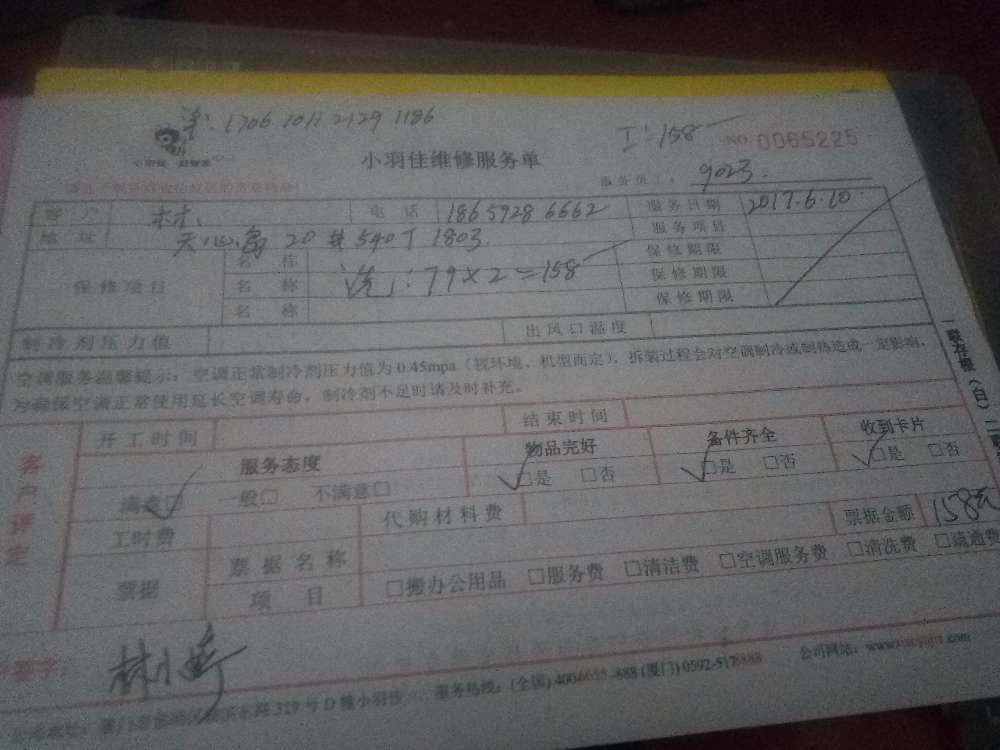 单: 1706 1011 2129 1186
工: 158
NO. 0065225
小羽佳维修服务单
服务员工: 9023.
客户 林 电话 18659286662 服务日期 2017.6.10.
地址 天心岛 20 1803 服务项目
保修项目 名称 洗: 79×2=158 保修期限
名称 保修期限
名称 保修期限
制冷剂压力值 出风口温度
空调服务温馨提示: 空调正常制冷剂压力值为 0.45mpa (视环境、机型而定), 拆装过程会对空调制冷或制热造成一定影响,
为确保空调正常使用延长空调寿命, 制冷剂不足时请及时补充。
开工时间 结束时间
客户评定
服务态度 物品完好 备件齐全 收到卡片
满意□ 一般□ 不满意□ □是 □否 □是 □否 □是 □否
工时费 代购材料费 票据金额 158元
票据 票据名称
项目 □搬办公用品 □服务费 □清洁费 □空调服务费 □清洗费 □疏通费
签字: 林小
319号D幢小羽佳 服务热线: (全国) 400 -888 (厦门) 0592-5178888 公司网站:
一联存根(白)